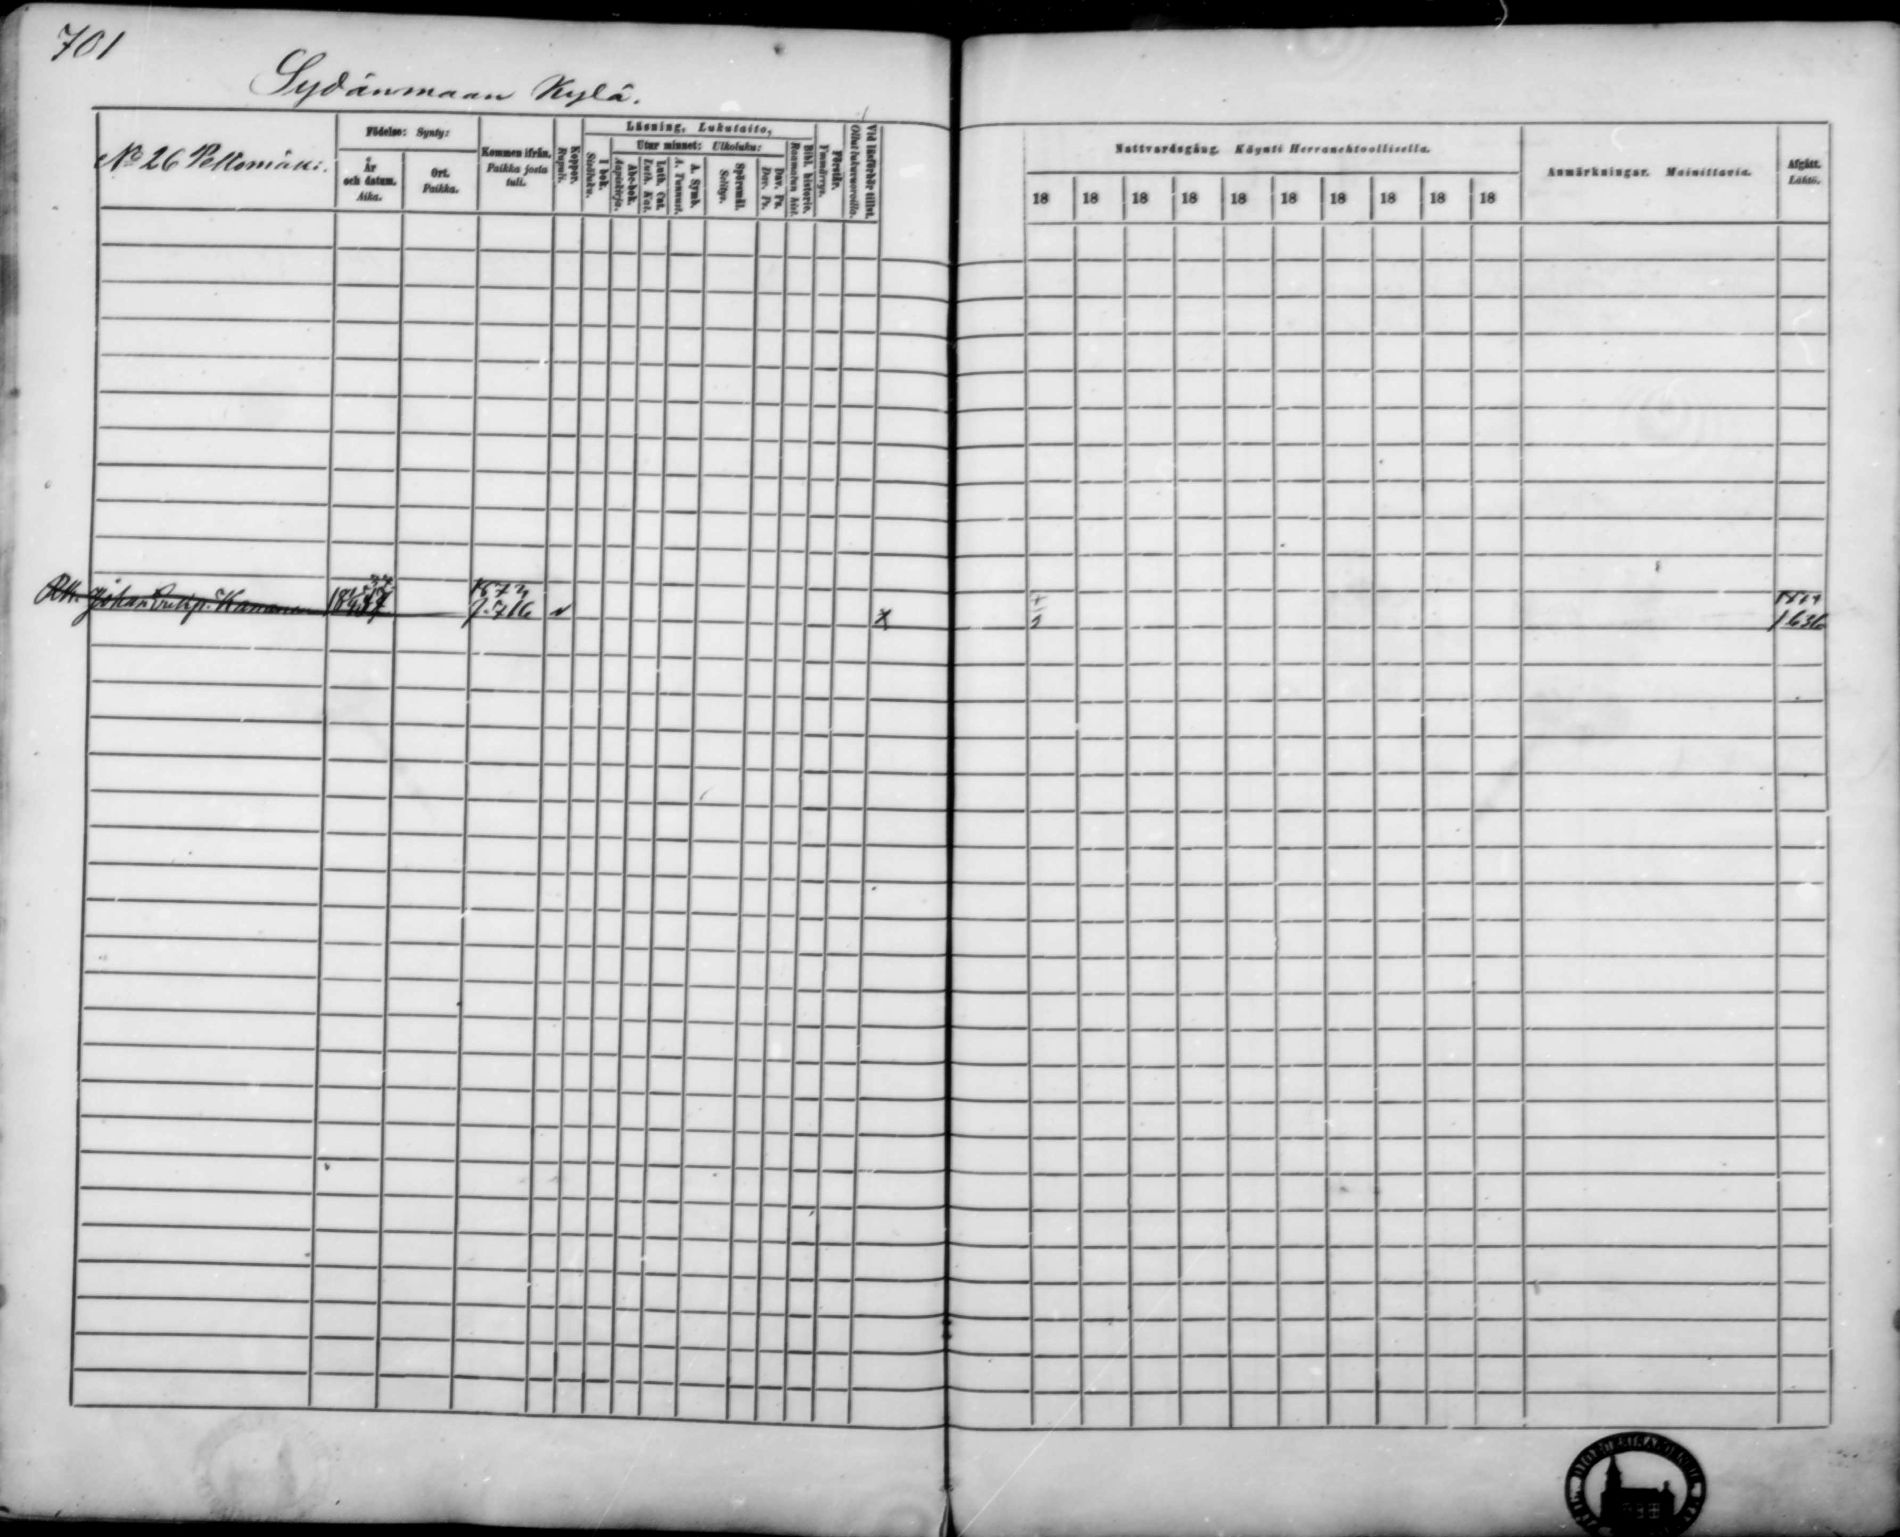 701
Sydänmaan Kylä.
No 26 Peltomäki.
Födelse: Synty:
År och datum. Aika.
Ort. Paikka.
Kommen ifrån. Paikka josta tuli.
Koppor. Rupuli.
Läsning, Lukutaito,
I bok. Sisäluku.
Utur minnet: Ulkoluku:
Abc-bok. Aapiskirja.
Luth. Cat. Luth. Kat.
A. Symb. A. Tunnust.
Spörsmål. Selitys.
Dav. Ps. Dav. Ps.
Bibl. historie. Raamatun hist.
Förstår. Ymmärrys.
Vid läsförhör tillst. Ollut lukuvuoroilla.
Nattvardsgång. Käynti Herranehtoollisella.
18 18 18 18 18 18 18 18 18 18
Anmärkningar. Mainittavia.
Afgått. Lähtö.
Johan